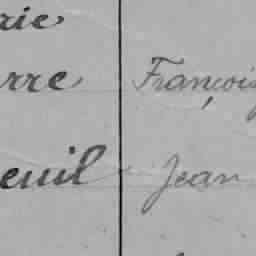 rie
rre François
euil Jean